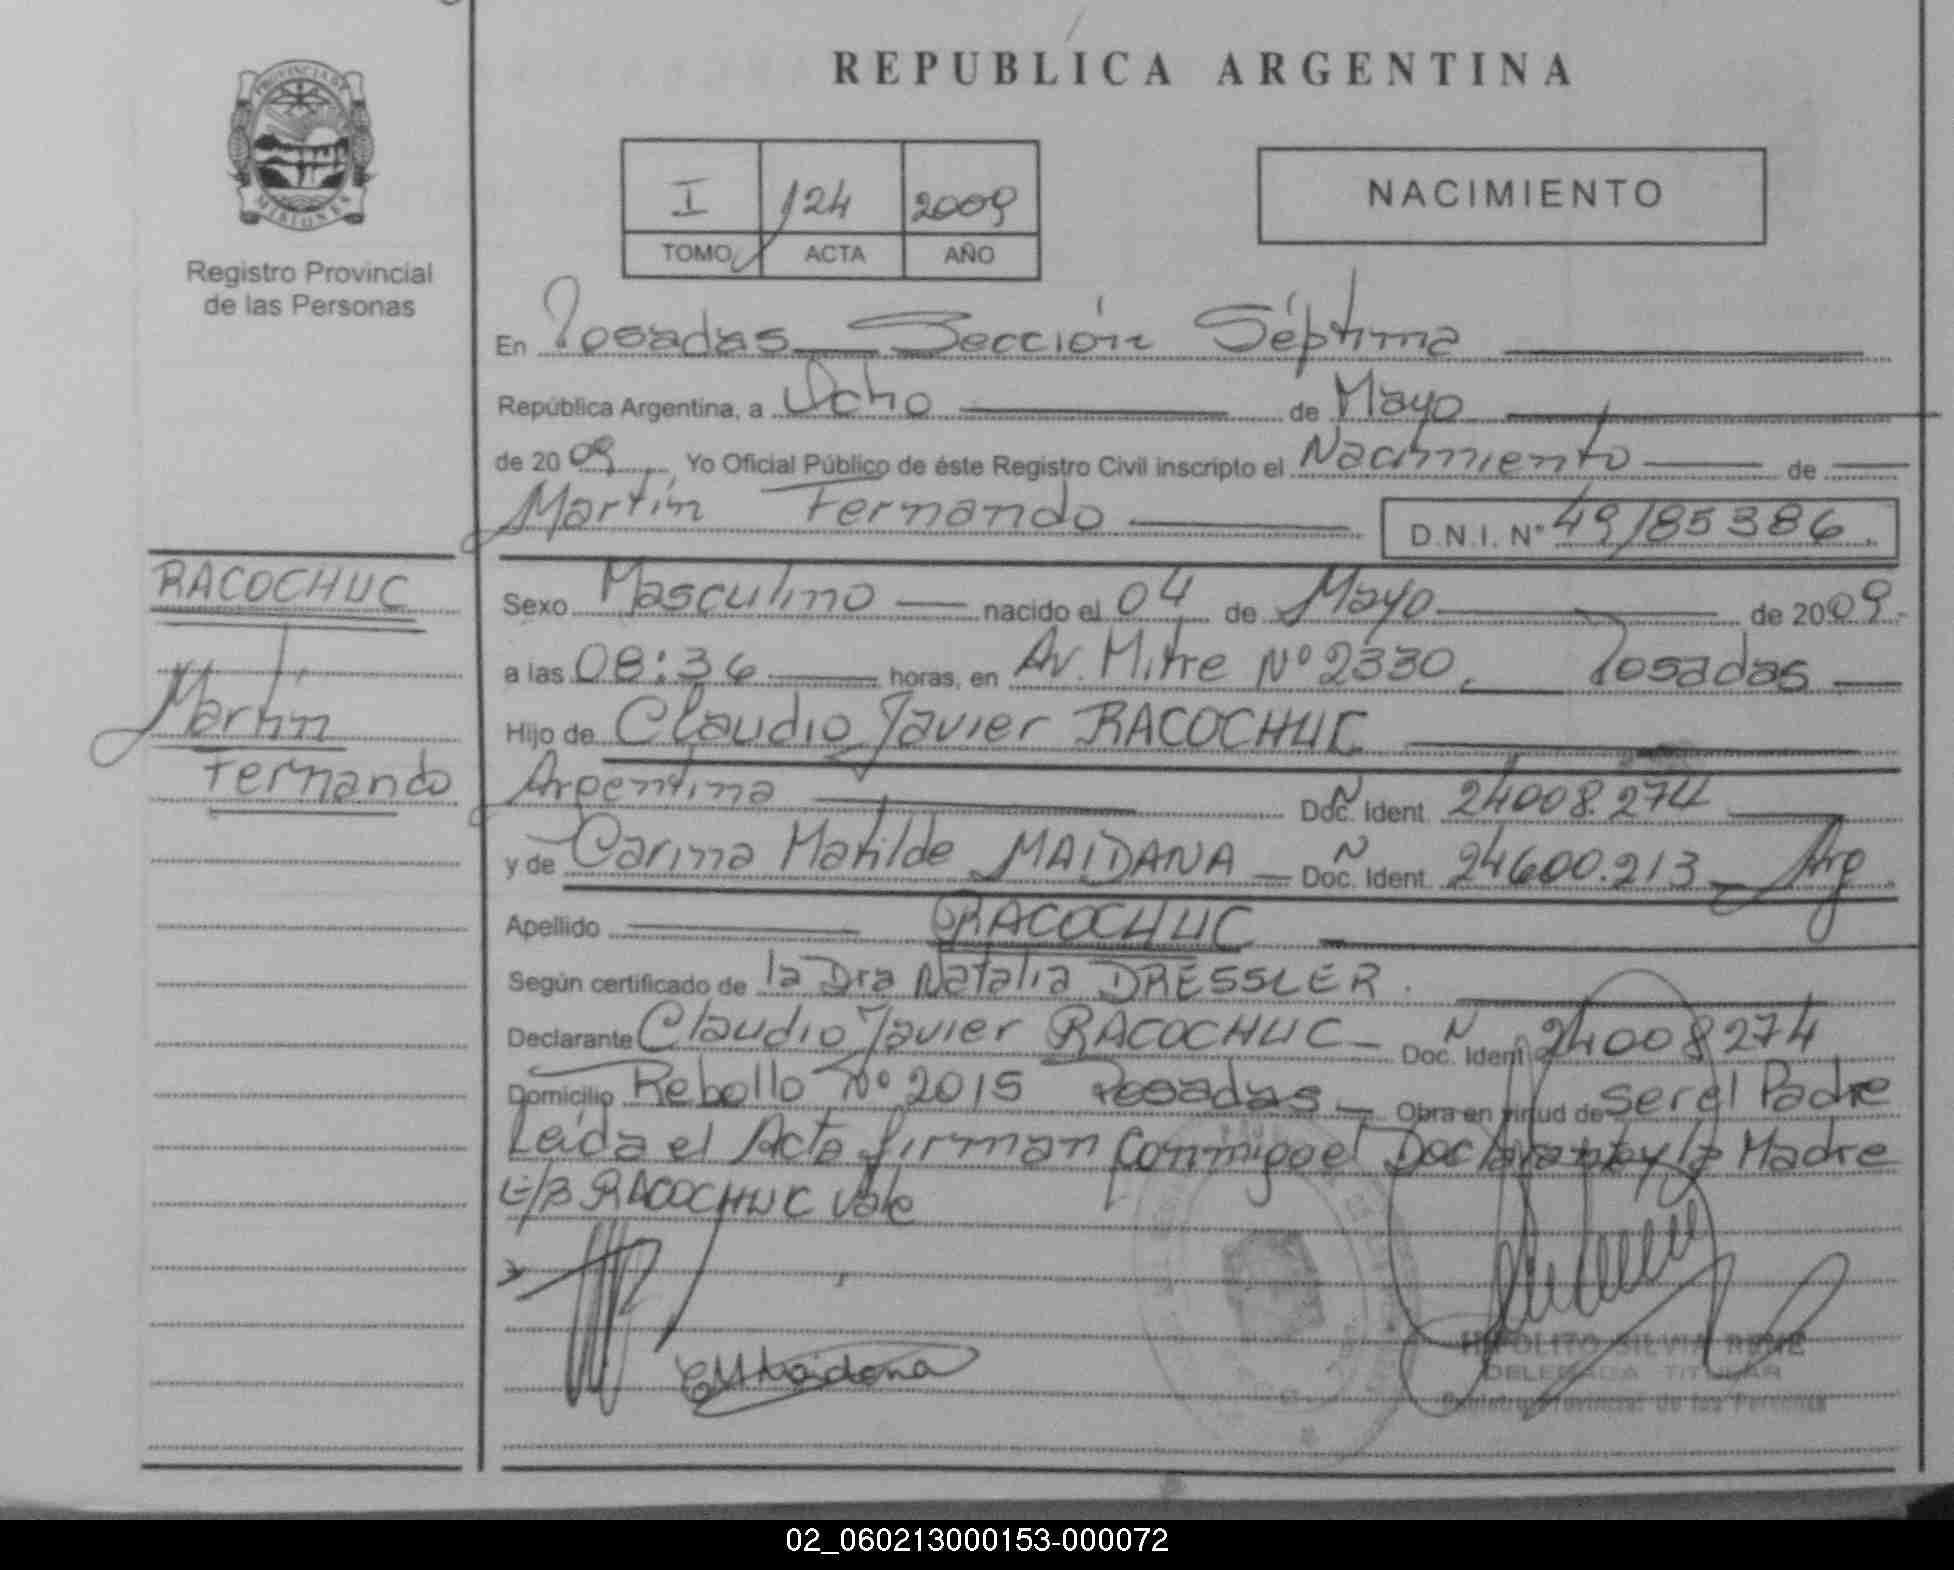 PROVINCIA DE
MISIONES
Registro Provincial
de las Personas
REPUBLICA ARGENTINA
I 124 2009
TOMO ACTA AÑO
NACIMIENTO
En Posadas Sección Séptima
República Argentina, a Ocho de Mayo
de 2009, Yo Oficial Público de éste Registro Civil inscripto el Nacimiento de
Martín Fernando D.N.I. Nº 49185386.
RACOCHUC
Martín
Fernando
Sexo Masculino nacido el 04 de Mayo de 2009.
a las 08:36 horas, en Av. Mitre Nº 2330, Posadas
Hijo de Claudio Javier RACOCHUC
Argentina Doc. Ident. 24008.274
y de Carina Matilde MAIDANA Doc. Ident. 24600.213 Arg
Apellido RACOCHUC
Según certificado de la Dra Natalia DRESSLER.
Declarante Claudio Javier RACOCHUC Doc. Ident. 24008274
Domicilio Rebollo Nº 2015 Posadas Obra en virtud de ser el Padre
Leída el Acta firman conmigo el Declarante y la Madre
E/B RACOCHUC Vale
CMMaidana
HIPOLITO SILVIA RENE
DELEGADA TITULAR
Registro Provincial de las Personas
02_060213000153-000072